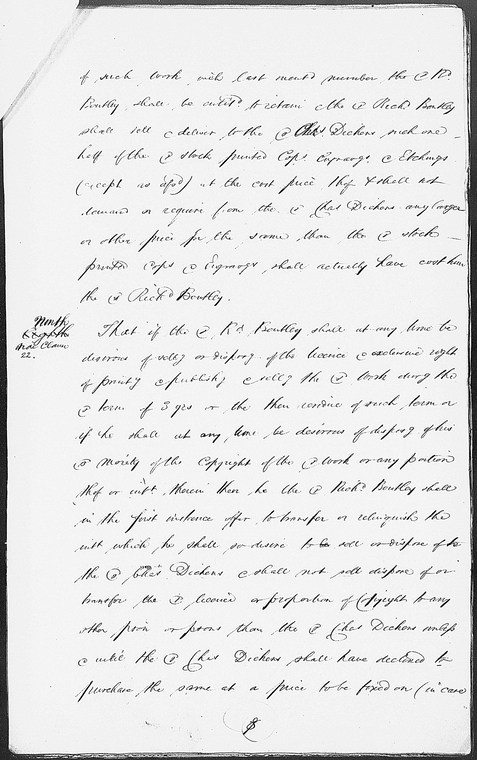 of such work with last mentd number the sd Rd
Bentley shall be entitd to retain the sd Richd Bentley
shall sell & deliver to the sd Chas Dickens such one
half of the sd stock printed Cops Engravgs & Etchings
(except as afsd) at the cost price thof & shall not
demand or require from the sd Chas Dickens any larger
or other price for the same than the sd stock
printed Cops & Engravgs shall actually have cost him
the sd Richd Bentley.
Ninth
Eighth
new Clause
22.
That if the sd Rd Bentley shall at any time be
desirous of sellg or disposg of the licence & exclusive right
of printg & publishg & sellg the sd work durg the
sd term of 3 yrs or the then residue of such term or
if he shall at any time be desirous of disposg of his
sd moiety of the Copyright of the sd Work or any portion
thof or intt therein then he the sd Richd Bentley shall
in the first instance offer to transfer or relinquish the
intt which he shall so desire to sell or dispose of to
the sd Chas Dickens & shall not sell dispose of or
transfer the sd licence or proportion of Copyright to any
other pson or psons than the sd Chas Dickens unless
& until the sd Chas Dickens shall have declined to
purchase the same at a price to be fixed on (in case
8